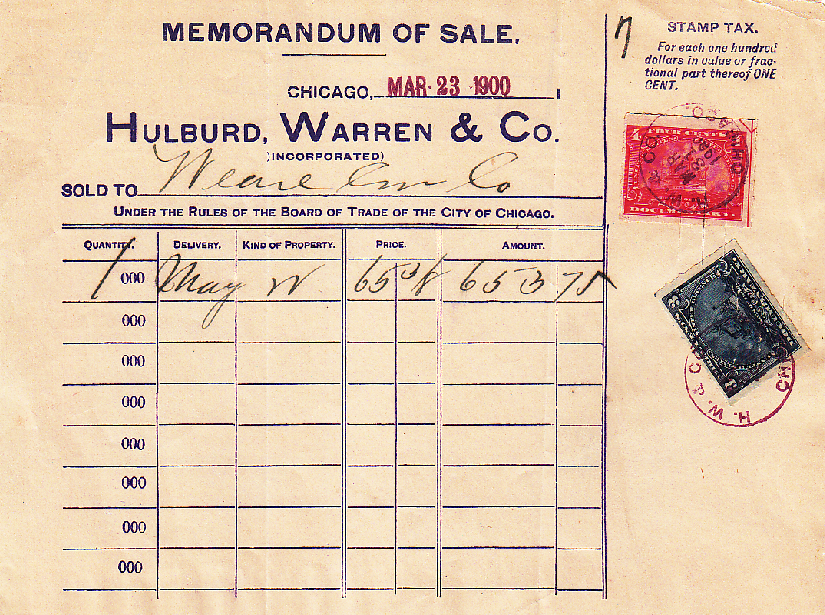 MEMORANDUM OF SALE.
CHICAGO, MAR 23 1900
HULBURD, WARREN & CO.
(INCORPORATED)
SOLD TO Weare Com Co
UNDER THE RULES OF THE BOARD OF TRADE OF THE CITY OF CHICAGO.
QUANTITY. DELIVERY. KIND OF PROPERTY. PRICE. AMOUNT.
1 000 May W 65 3/8 653 75
000
000
000
000
000
000
000
7
STAMP TAX.
For each one hundred
dollars in value or frac-
tional part thereof ONE
CENT.
FOUR CENTS
DOCUMENTARY
H. W. & CO.